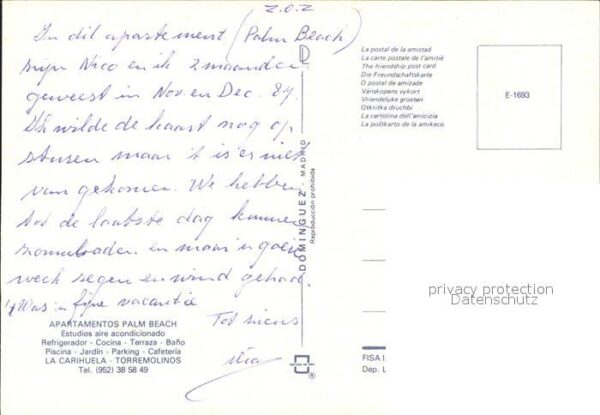 z.o.z
In dit apartement (Palm Beach)
zijn Nico en ik 2 maanden
geweest in Nov en Dec. 87.
Ik wilde de kaart nog op
sturen maar 't is er niet
van gekomen. We hebben
tot de laatste dag kunnen
zonnebaden en maar 'n goeie
week regen en wind gehad.
't Was 'n fijne vacantie
Tot ziens
APARTAMENTOS PALM BEACH
Estudios aire acondicionado
Refrigerador - Cocina - Terraza - Baño
Piscina - Jardín - Parking - Cafetería
LA CARIHUELA - TORREMOLINOS
Tel. (952) 38 58 49
DOMINGUEZ - MADRID
Reproducción prohibida
®
La postal de la amistad
La carte postale de l'amitié
The friendship post card
Die Freundschaftskarte
O postal de amizade
Vänskapens vykort
Vriendelyke groeten
Otkritka druchbi
La cartolina dell'amicizia
La poŝtkarto de la amikeco
E-1693
privacy protection
Datenschutz
FISA I.
Dep. L